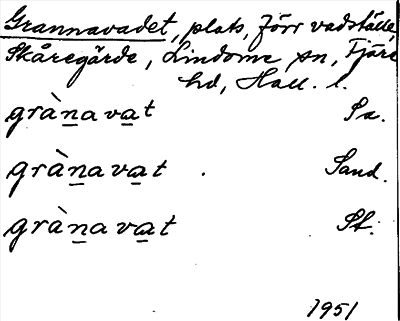 Grannavadet, plats, förr vadställe,
Skåregärde, Lindome sn, Fjäre
hd, Hall. l.
grànavat Sa.
grànavat. Sand.
grànavat St.
1951